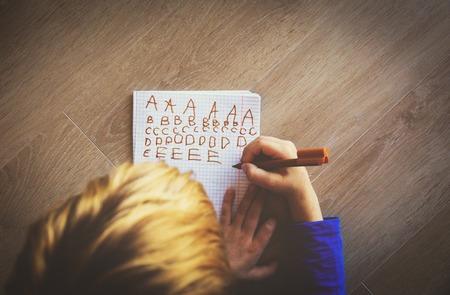 A A A A A A
B B B B B B B B
C C C C C C C C C C
D D D D D D D D
E E E E E